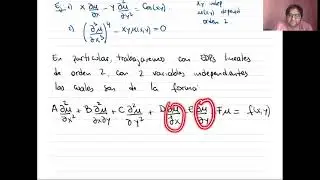 Ej. i) x ∂u/∂x - y ∂²u/∂y² = Cos(x,y)
x,y indep
u(x,y) depend
orden 2
c) (∂³u/∂x³)⁴ - xyu(x,y) = 0
En particular, trabajaremos con EDPs lineales
de orden 2, con 2 variables independientes
las cuales son de la forma
A ∂²u/∂x² + B ∂²u/∂x∂y + C ∂²u/∂y² + D ∂u/∂x + E ∂u/∂y + Fu = f(x,y)